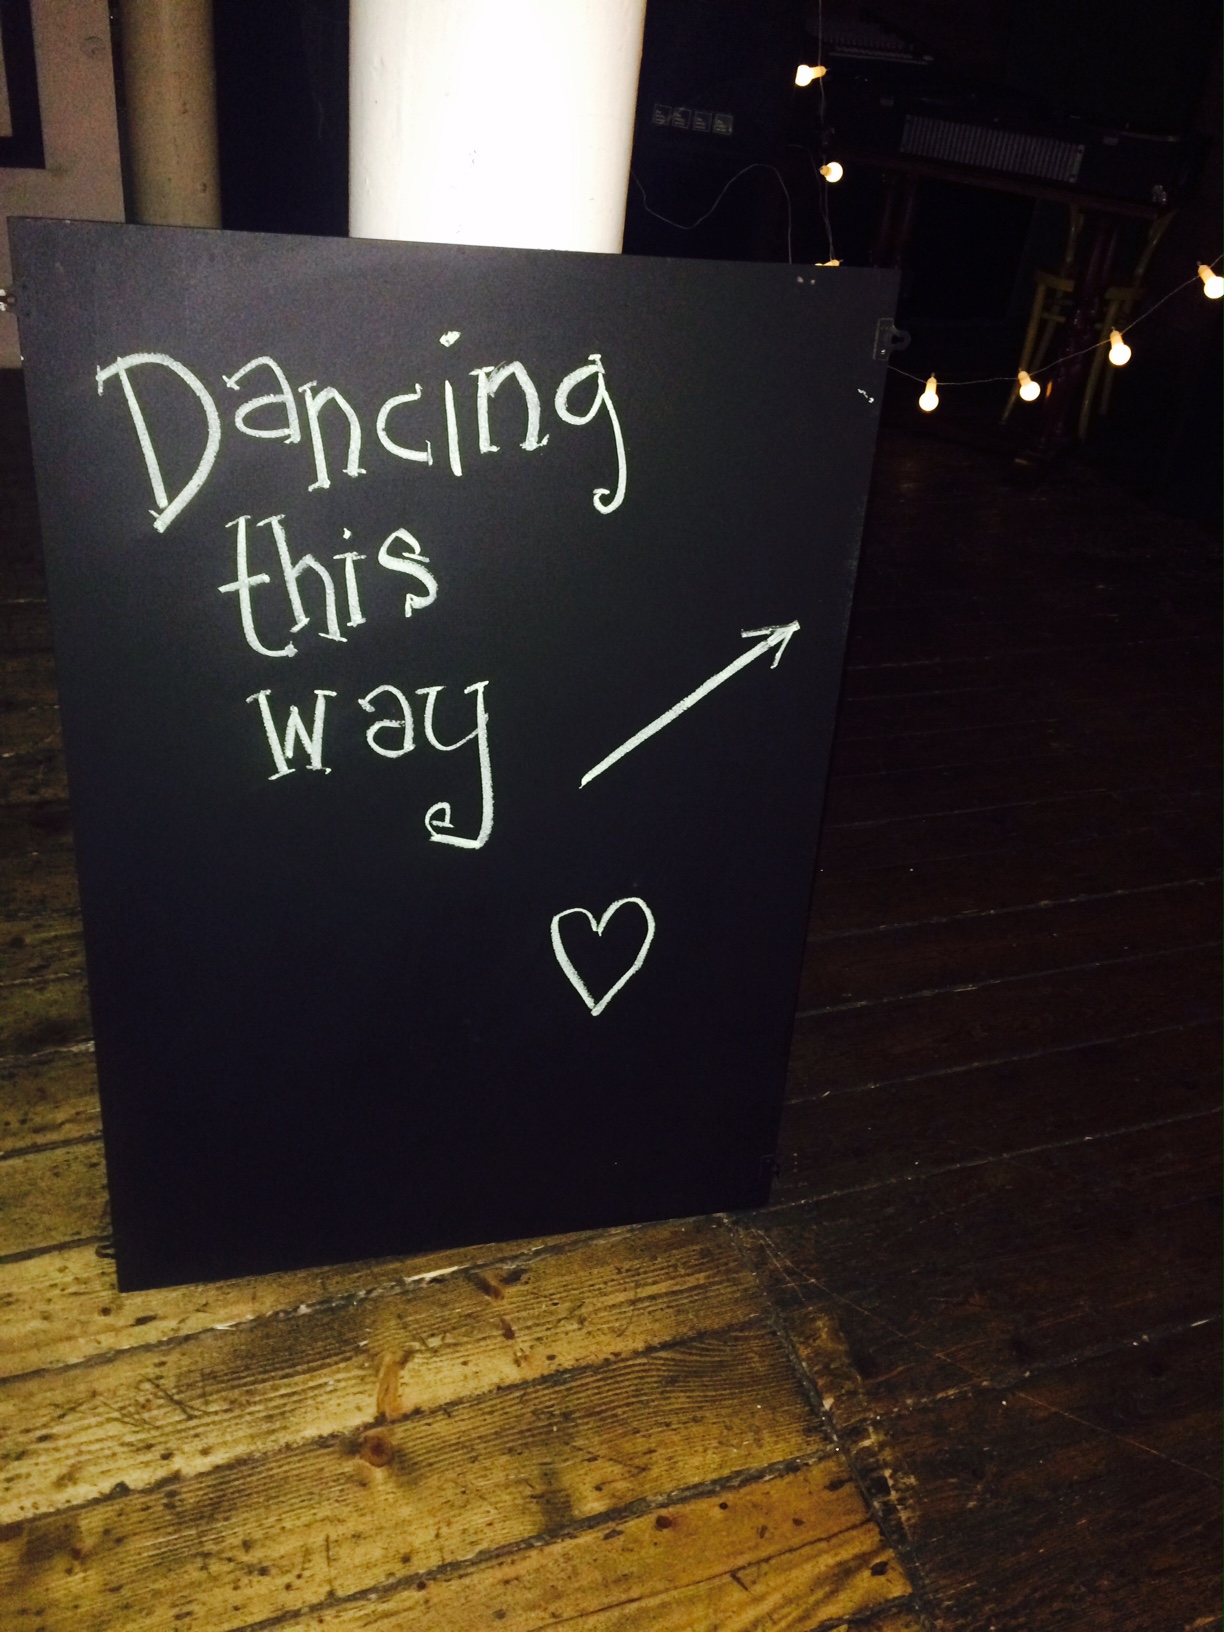 Dancing
this
way